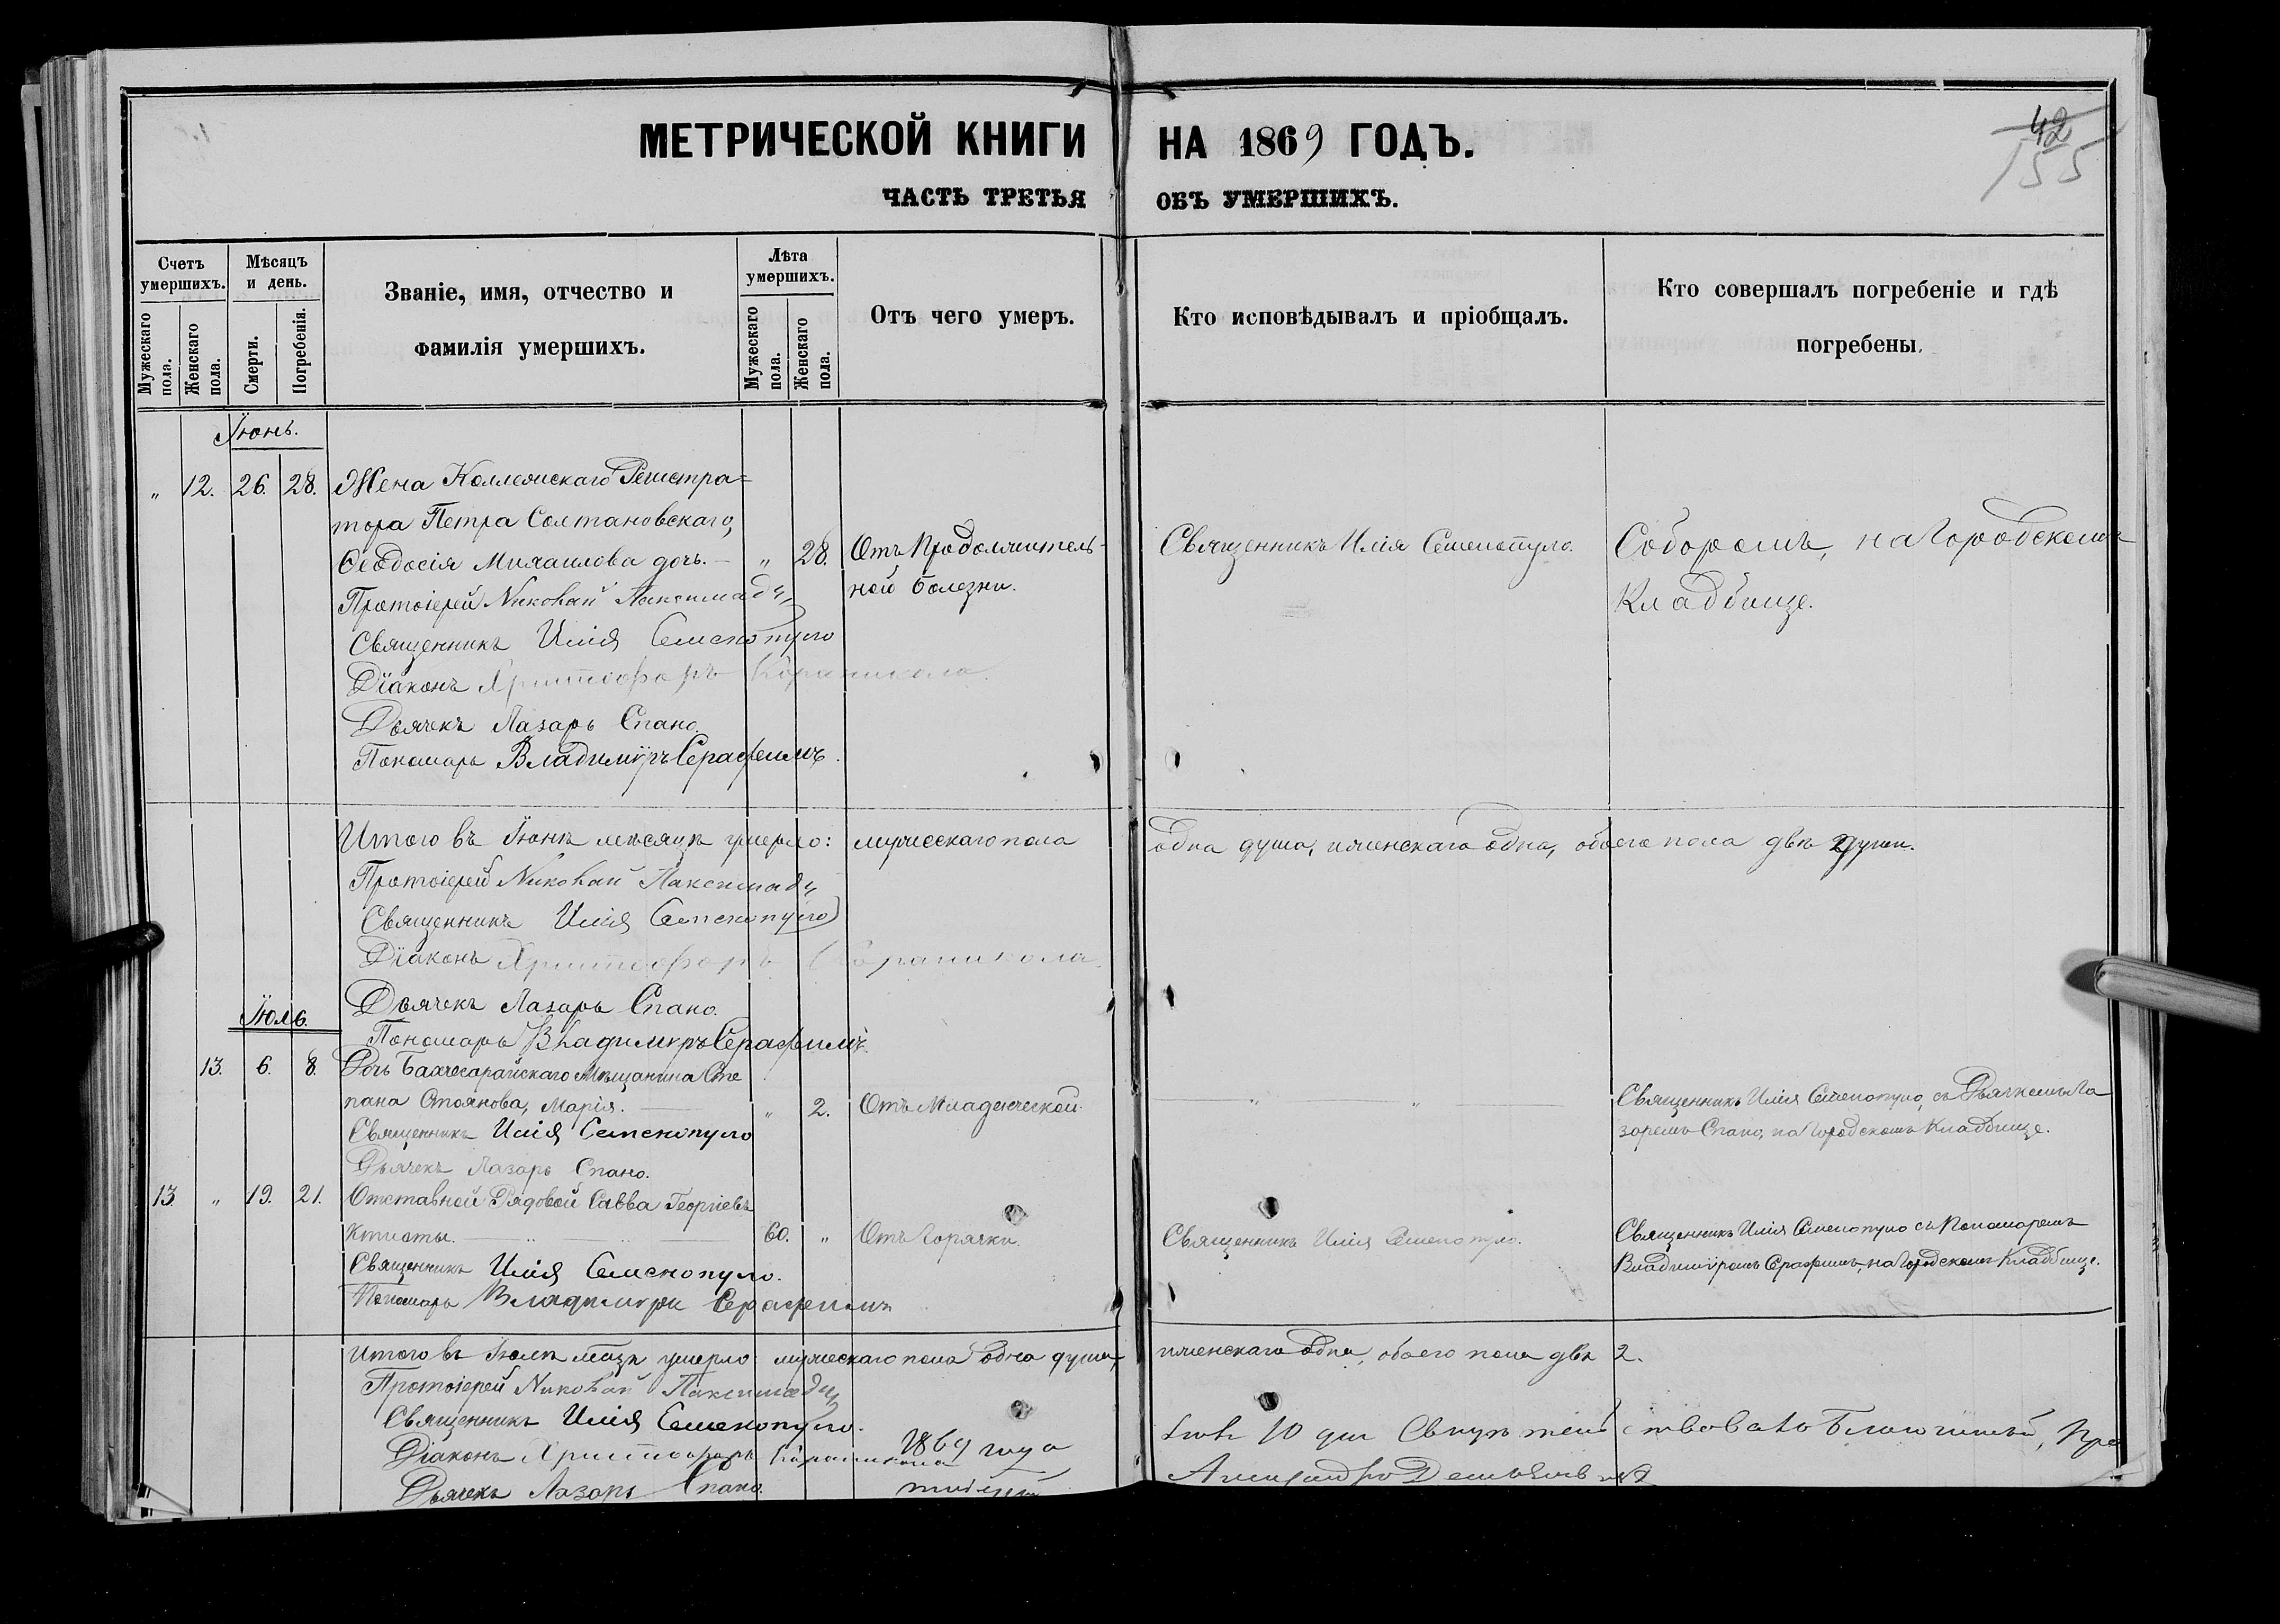 МЕТРИЧЕСКОЙ КНИГИ НА 1869 ГОДЪ.
42
155
ЧАСТЬ ТРЕТЬЯ ОБЪ УМЕРШИХЪ.
Счетъ умершихъ.
Мужескаго пола.
Женскаго пола.
Мѣсяцъ и день.
Смерти.
Погребенія.
Званіе, имя, отчество и
фамилія умершихъ.
Лѣта умершихъ.
Мужескаго пола.
Женскаго пола.
Отъ чего умеръ.
Кто исповѣдывалъ и пріобщалъ.
Кто совершалъ погребеніе и гдѣ
погребены.
Іюнь.
„ 12. 26. 28. Жена Коллежскаго Регистра=
тора Петра Солтановскаго,
Ѳеодосія Михаилова дочь. — „ 28. Отъ Продолжитель-
ной болезни.
Священникъ Илія Семенопуло.
Соборомъ, на Городскомъ
Кладбище.
Протоіерей Николай Паксимади
Священникъ Илія Семенопуло
Діаконъ Христофоръ Кораникола.
Дьячекъ Лазарь Спано.
Пономарь Владимиръ Серафимъ.
Итого въ Іюнѣ мѣсяцѣ умерло: мужескаго пола одна душа, женскаго одна, обоего пола двѣ души.
Протоіерей Николай Паксимади
Священникъ Илія Семенопуло
Діаконъ Христофоръ Кораникола.
Дьячекъ Лазарь Спано.
Пономарь Владимиръ Серафимъ.
Іюль.
13. 6. 8. Дочь Бахчесарайскаго Мѣщанина Сте
пана Стоянова, Марія. — „ 2. Отъ Младенческой.
„ „
Священникъ Илія Семенопуло, съ Дьячкомъ Ла
заремъ Спано, на Городскомъ Кладбище.
Священникъ Илія Семенопуло
Дьячекъ Лазарь Спано.
13. „ 19. 21. Отставной Рядовой Савва Георгіевъ
Ктисты. — 60. „ Отъ Горячки.
Священникъ Илія Семенопуло.
Священникъ Илія Семенопуло съ Пономаремъ
Владимиромъ Серафимъ, на Городскомъ Кладбище.
Священникъ Илія Семенопуло.
Пономарь Владимиръ Серафимъ
Итого въ Іюлѣ мѣцѣ умерло мужескаго пола одна душа, женскаго одна, обоего пола двѣ 2.
Протоіерей Николай Паксимади
Священникъ Илія Семенопуло.
Діаконъ Христофоръ Кораникола
Дьячекъ Лазарь Спано.
1869 года
10 дня